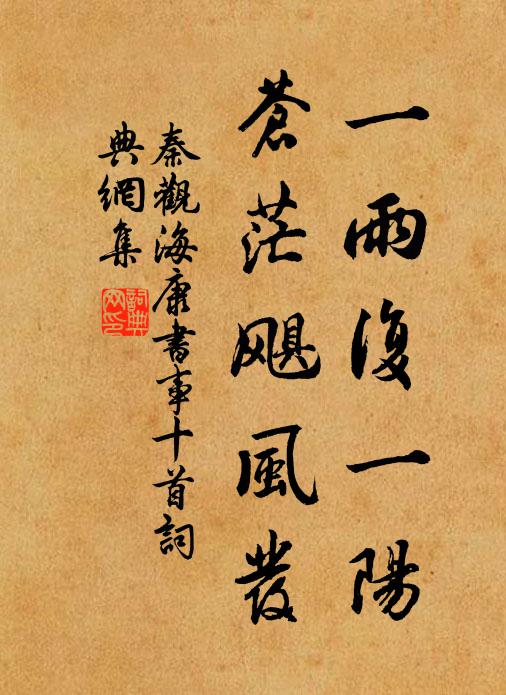 一雨復一陽
蒼茫颶風發
秦觀海康書事十首詞
典網集
詞典
网印